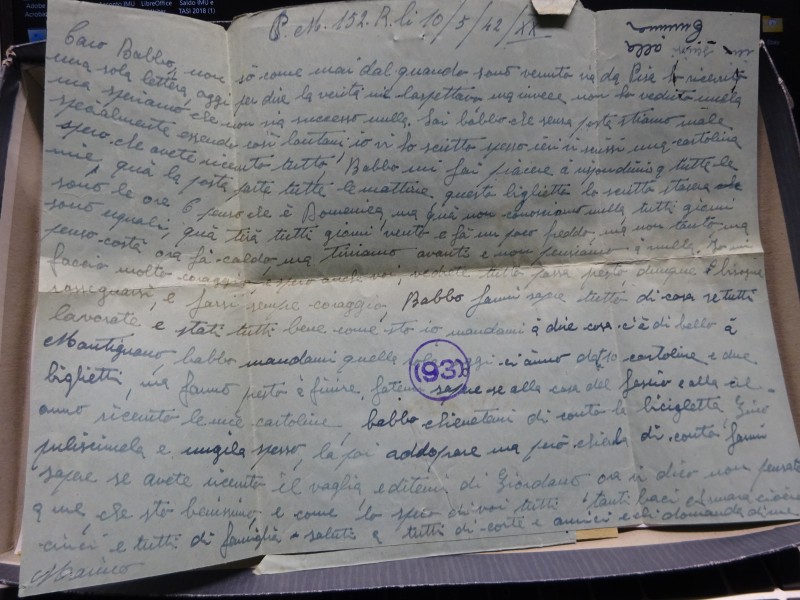 Adobe
Acrobat
imento IMU
LibreOffice
Saldo IMU e
TASI 2018 (1)
P. M. 152. R. li 10/5/42/XX
alla
Caro Babbo, non sò come mai dal quando sono venuto via da Pisa ricevuto
una sola lettera, oggi per dire la verità mi laspettavo ma invece non ho veduto nulla
ma speriamo che non sia successo nulla. Sai babbo che senza posta stiamo male
specialmente essendo così lontani, io vi ho scritto spesso ieri vi scrissi una cartolina
spero che avete ricevuto tutto, Babbo mi fai piacere à rispondimi à tutte le
mie, quà la posta parte tutte le mattine, questo biglietto lo scritto stasera che
sono le ore 6 penso che è Domenica, ma quà non conosciamo nulla tutti giorni
sono uguali, quà tira tutti giorni vento e fà un poco freddo, ma non tanto ma
penso costà ora fà caldo, ma tiriamo avanti e non pensiamo à nulla. Io mi
faccio molto coraggio e spero anche voi, vedrete tutto passa presto, dunque è bisogna
rassegnarsi, e farsi sempre coraggio, Babbo fammi sapere tutto di casa se tutti
lavorate, e stati tutti bene come sto io mandami à dire cosa c'è di bello à
Mantignano, babbo mandami quella oggi ci anno dato 10 cartoline e due
biglietti, ma fanno presto à finire, fatemi sapere se alla casa del fascio e alla cil
anno ricevuto le mie cartoline, babbo tienetami di conto la bicigletta, Gino
puliscimela e ungila spesso, la poi addoprare ma però tienla di conto fammi
sapere se avete ricevuto il vaglia e ditemi di Giordano ora vi dico non pensate
a me, che sto benissimo, e come lo spero di voi tutti tanti baci
cinci e tutti di famiglia saluti a tutti di corte e amici e chi domanda di me
Marino
(93)